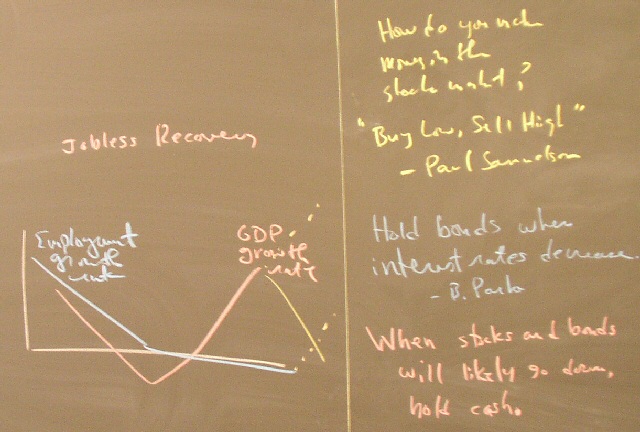 Jobless Recovery
Employment
growth
rate
GDP
growth
rate
How do you make
money in the
stock market?
"Buy Low, Sell High"
- Paul Samuelson
Hold bonds when
interest rates decrease.
- B.
When stocks and bonds
will likely go down,
hold cash.